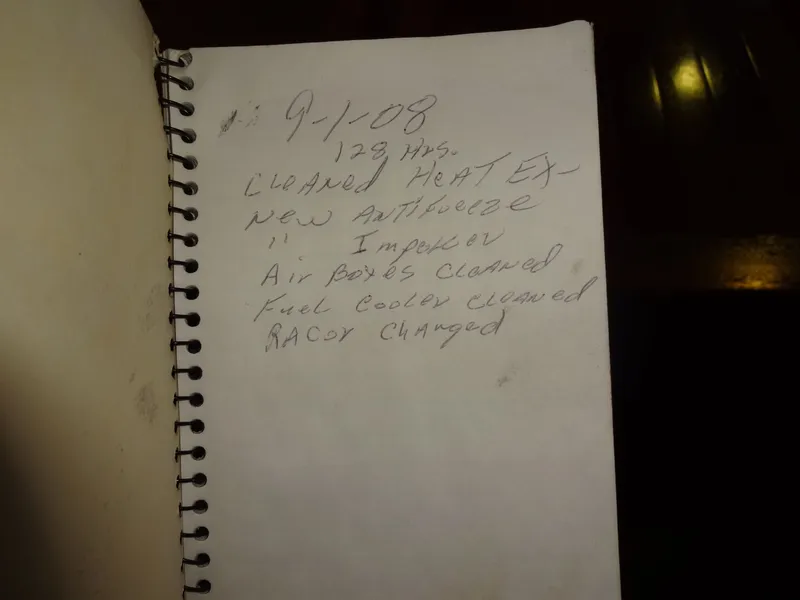 9-1-08
128 Hrs.
CLEANED HEAT EX-
NEW ANTIFREEZE
" Impeller
Air Boxes CLEANED
Fuel Cooler CLEANED
RACOR CHANGED